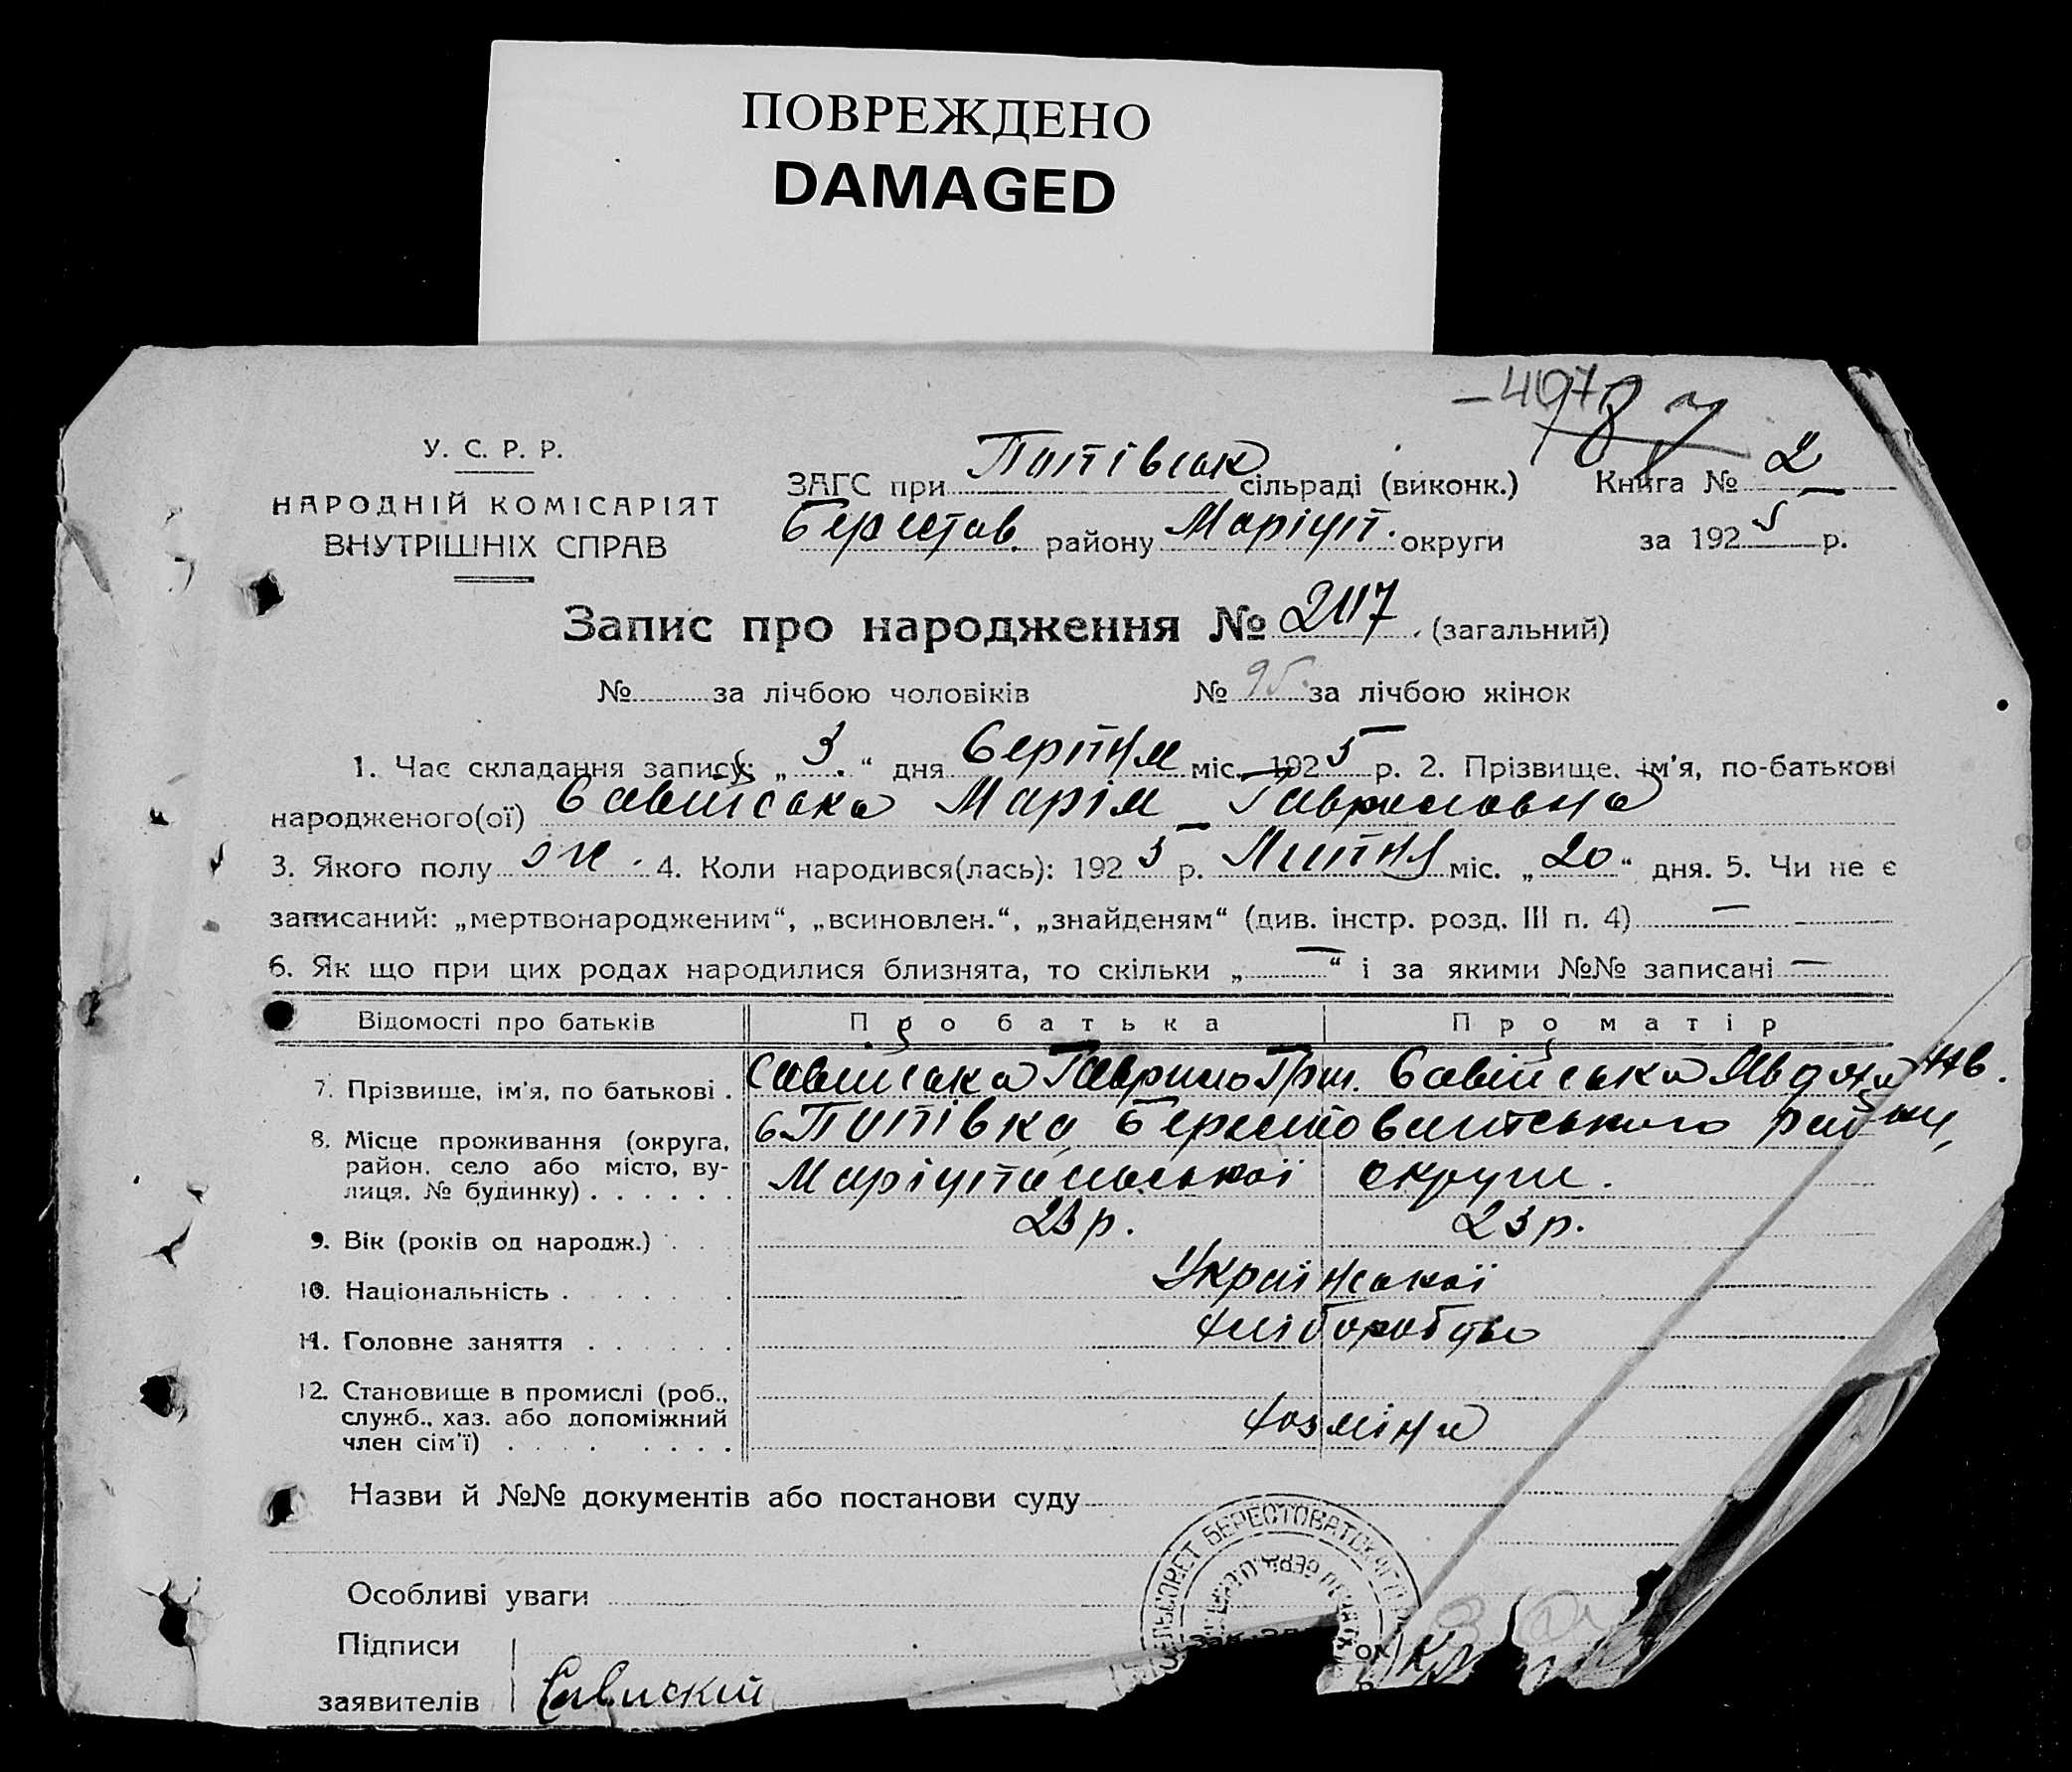 ПОВРЕЖДЕНО
DAMAGED
У. С. Р. Р.
НАРОДНІЙ КОМІСАРІЯТ
ВНУТРІШНІХ СПРАВ
ЗАГС при Попівськ сільраді (виконк.) Книга № 2
Берестов. району Маріуп. округи за 1925 р.
Запис про народження № 2117 (загальний)
№ за лічбою чоловіків № 95 за лічбою жінок
1. Час складання запису: „3.“ дня Серпня міс. 1925 р. 2. Прізвище, ім'я, по-батькові
народженого(ої) Савійська Марія Гавриловна
3. Якого полу ж. 4. Коли народився(лась): 1925 р. Липня міс. „20“ дня. 5. Чи не є
записаний: „мертвонародженим“, „всиновлен.“, „знайденям“ (див. інстр. розд. III п. 4) —
6. Як що при цих родах народилися близнята, то скільки „—“ і за якими №№ записані —
Відомості про батьків Про батька Про матір
7. Прізвище, ім'я, по батькові . Савійська Гаврило Гри. Савійська Явдоха
8. Місце проживання (округа, район, село або місто, ву-лиця, № будинку) . . . . . . с. Попівка Берестовицького району,
Маріупільської округи.
9. Вік (років од народж.) . . . 23 р. 23 р.
10. Національність . . . . . . . Української
11. Головне заняття . . . . . . хліборобство
12. Становище в промислі (роб.,
служб., хаз. або допоміжний
член сім'ї) . . . . . . . . хозяїни
Назви й №№ документів або постанови суду
Особливі уваги
Підписи
заявителів Савиский
ЕЛЬСОВЕТ БЕРЕСТОВАТСКОГО